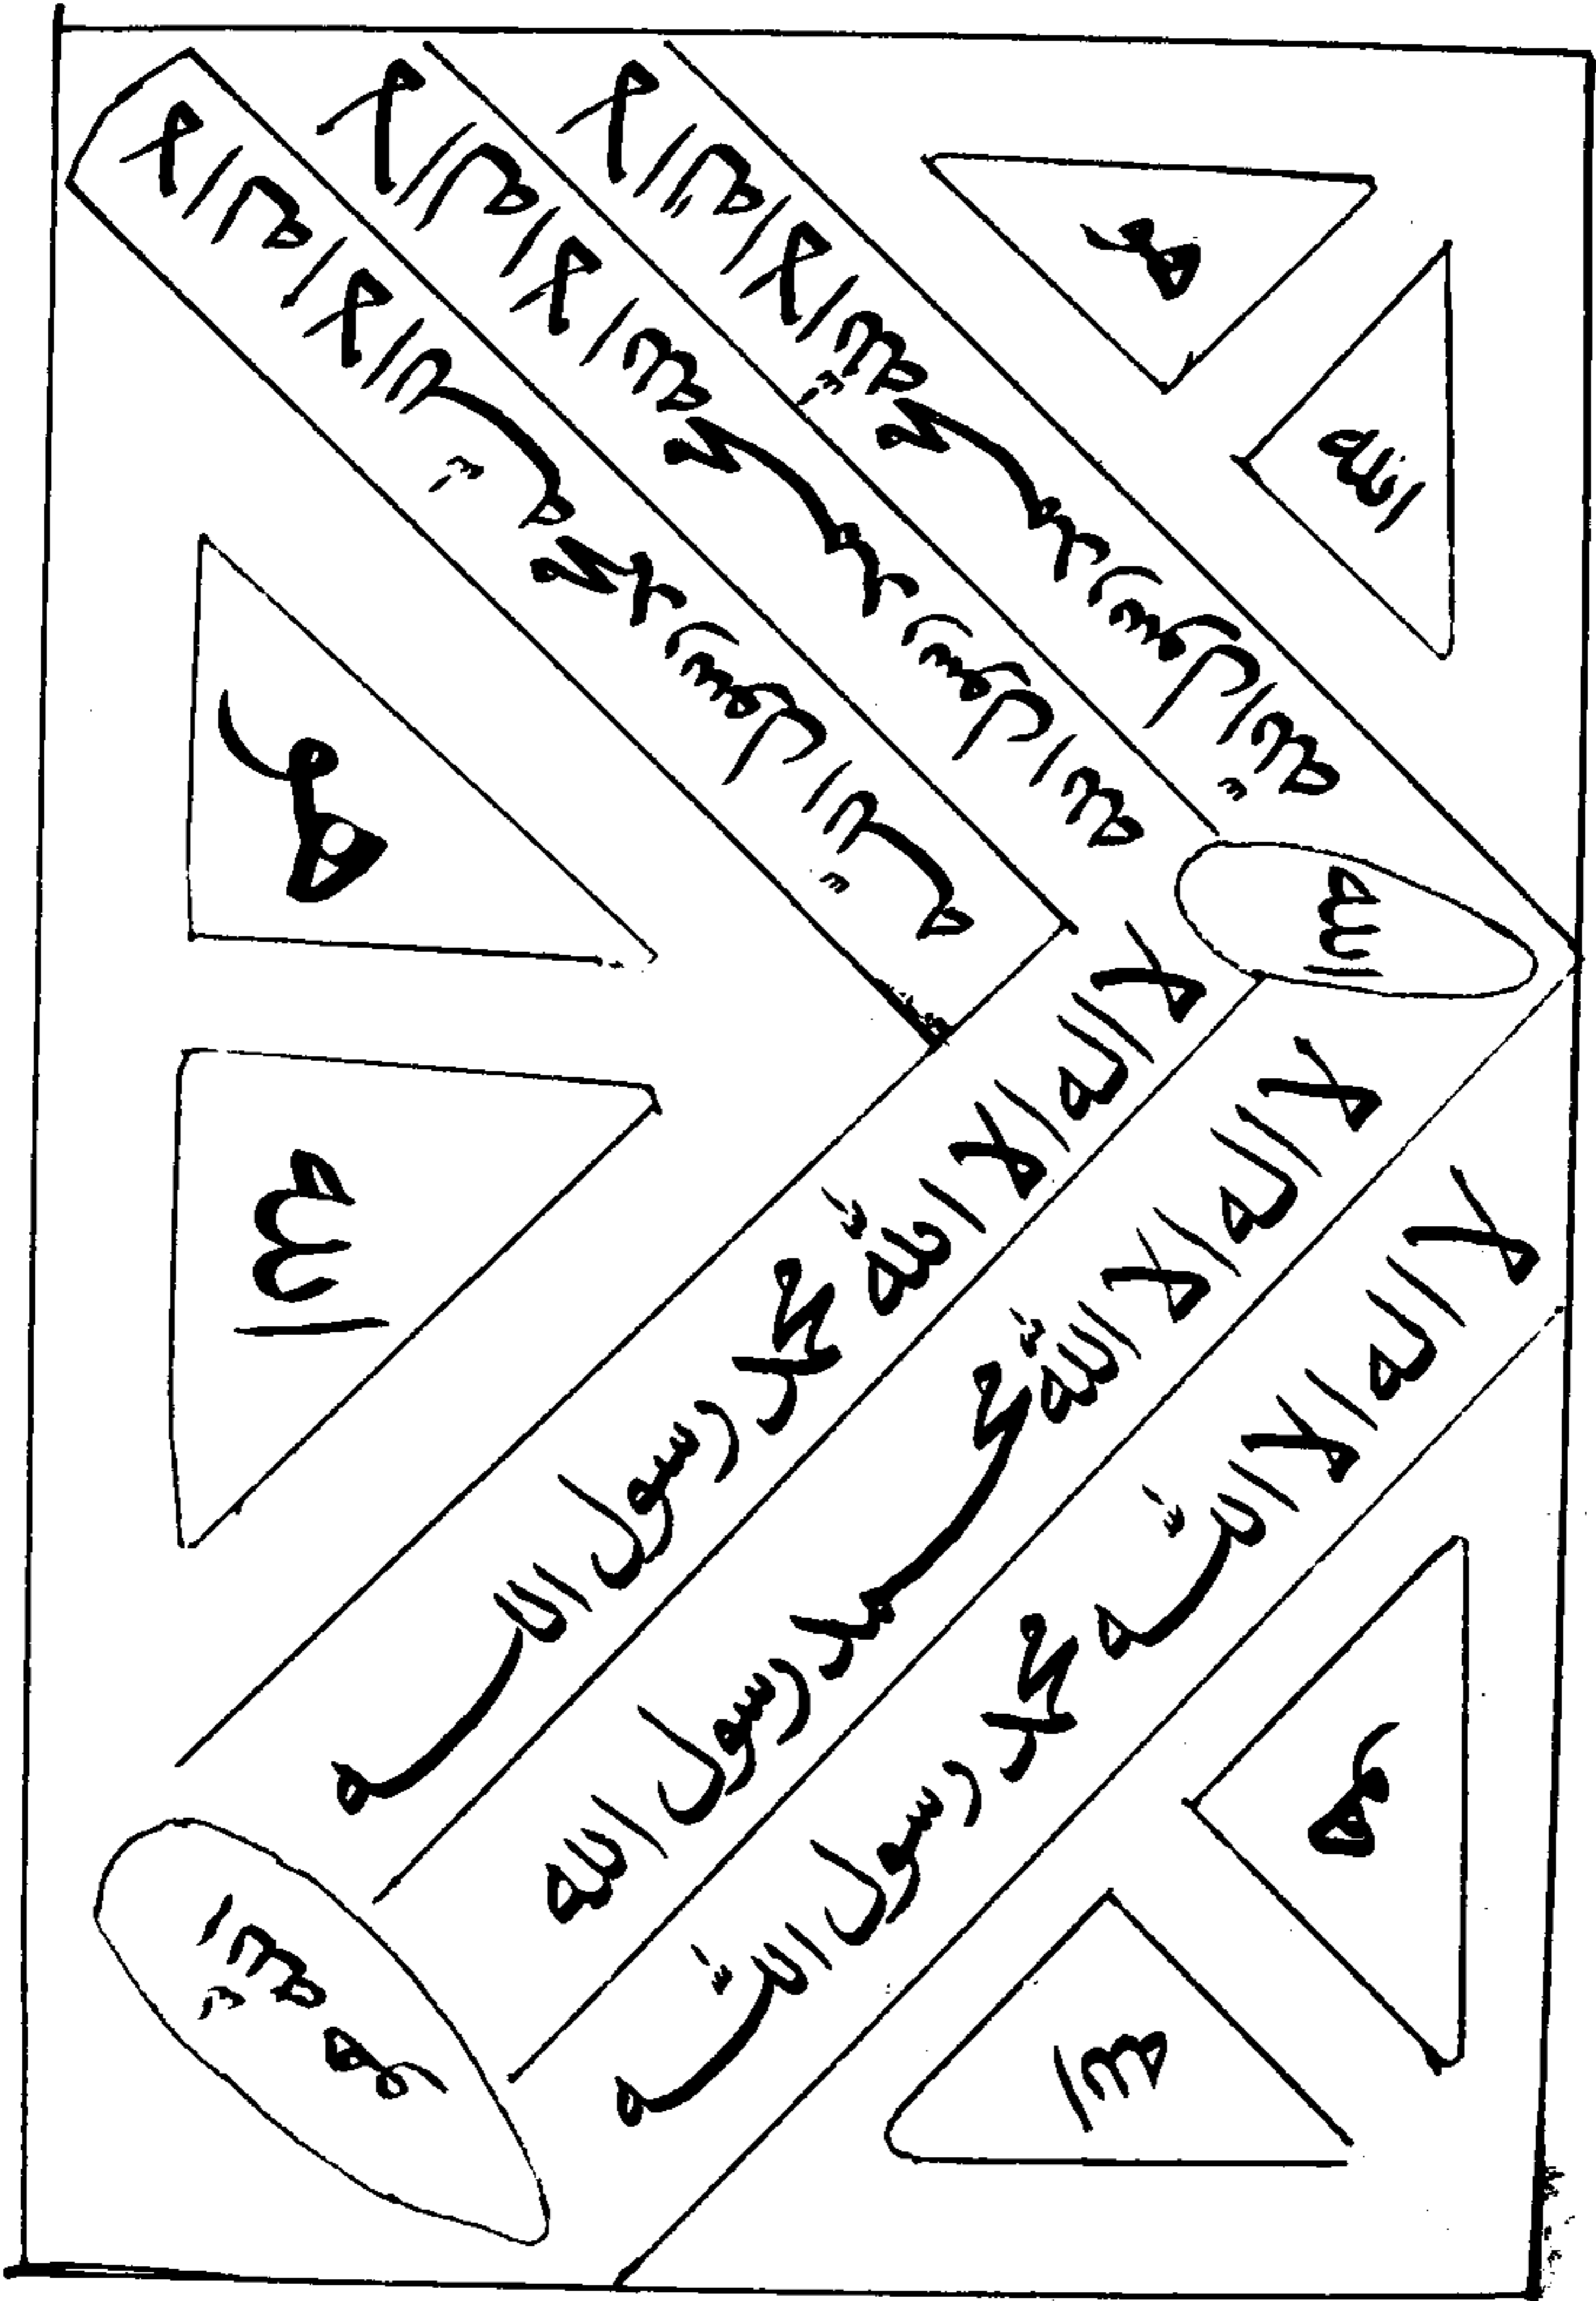 هو
الله
لا اله الا الله محمد رسول الله
لا اله الا الله محمد رسول الله
لا اله الا الله محمد رسول الله
هو
الله
الله
لا اله الا الله محمد رسول الله
لا اله الا الله محمد رسول الله
لا اله الا الله محمد رسول الله
هو
الله
الله هو